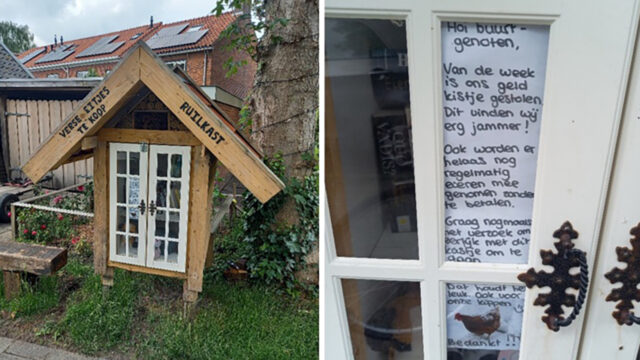 VERSE EITJES
TE KOOP
RUILKAST
Hoi buurt-
genoten,
Van de week
is ons geld
kistje gestolen
Dit vinden wij
erg jammer!
Ook worden er
helaas nog
regelmatig
eieren mee
genomen zonder
te betalen.
Graag nogmaals
het verzoek om
eerlijk met dit
kastje om te
gaan
Dat houdt het
leuk. Ook voor
onze kippen
Bedankt!!